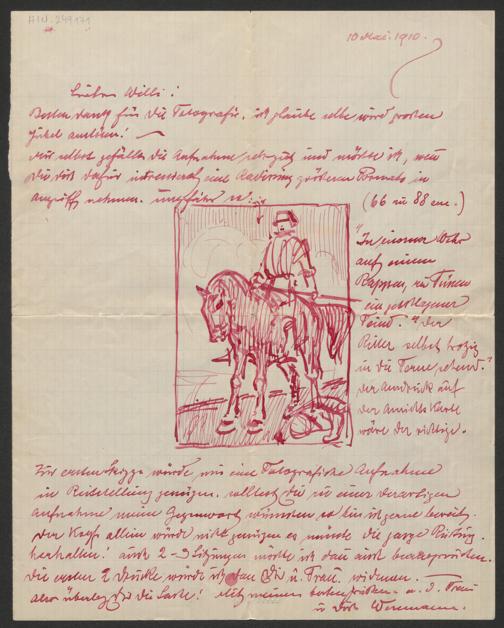 H.I.N. 249171
10 Mai. 1910.
Lieber Willi!
Besten Dank für die Fotografie, ich glaube selbe wird großen
Jubel auslösen!
Mir selbst gefällt die Aufnahme sehr gut und möchte ich, wenn
Du Dich dafür interessierst eine Radierung größeren Formats in
angriff nehmen. ungefähr so:
(66 zu 88 cm.)
"In eiserner Wehr
auf einem
Rappen, zu Füssen
ein geschlagener
Feind." Der
Ritter selbst trotzig
in die Ferne sehend."
Der Ausdruck auf
der Ansichtskarte
wäre der richtige.
Zur ersten Skizze würde mir eine Fotografische Aufnahme
in Reitstellung genügen. solltest Du zu einer derartigen
Aufnahme meine Gegenwart wünschen so bin ich gerne bereit.
Der Kopf allein würde nicht genügen es müsste die ganze Rüstung
herhalten! auch 2-3 Sitzungen möchte ich dann auch beanspruchen.
Die ersten 2 Drucke würde ich dann Dir u. Frau widmen.
also überleg Dir die Sache! mit meinen besten Grüßen a. D. Frau
u Dich